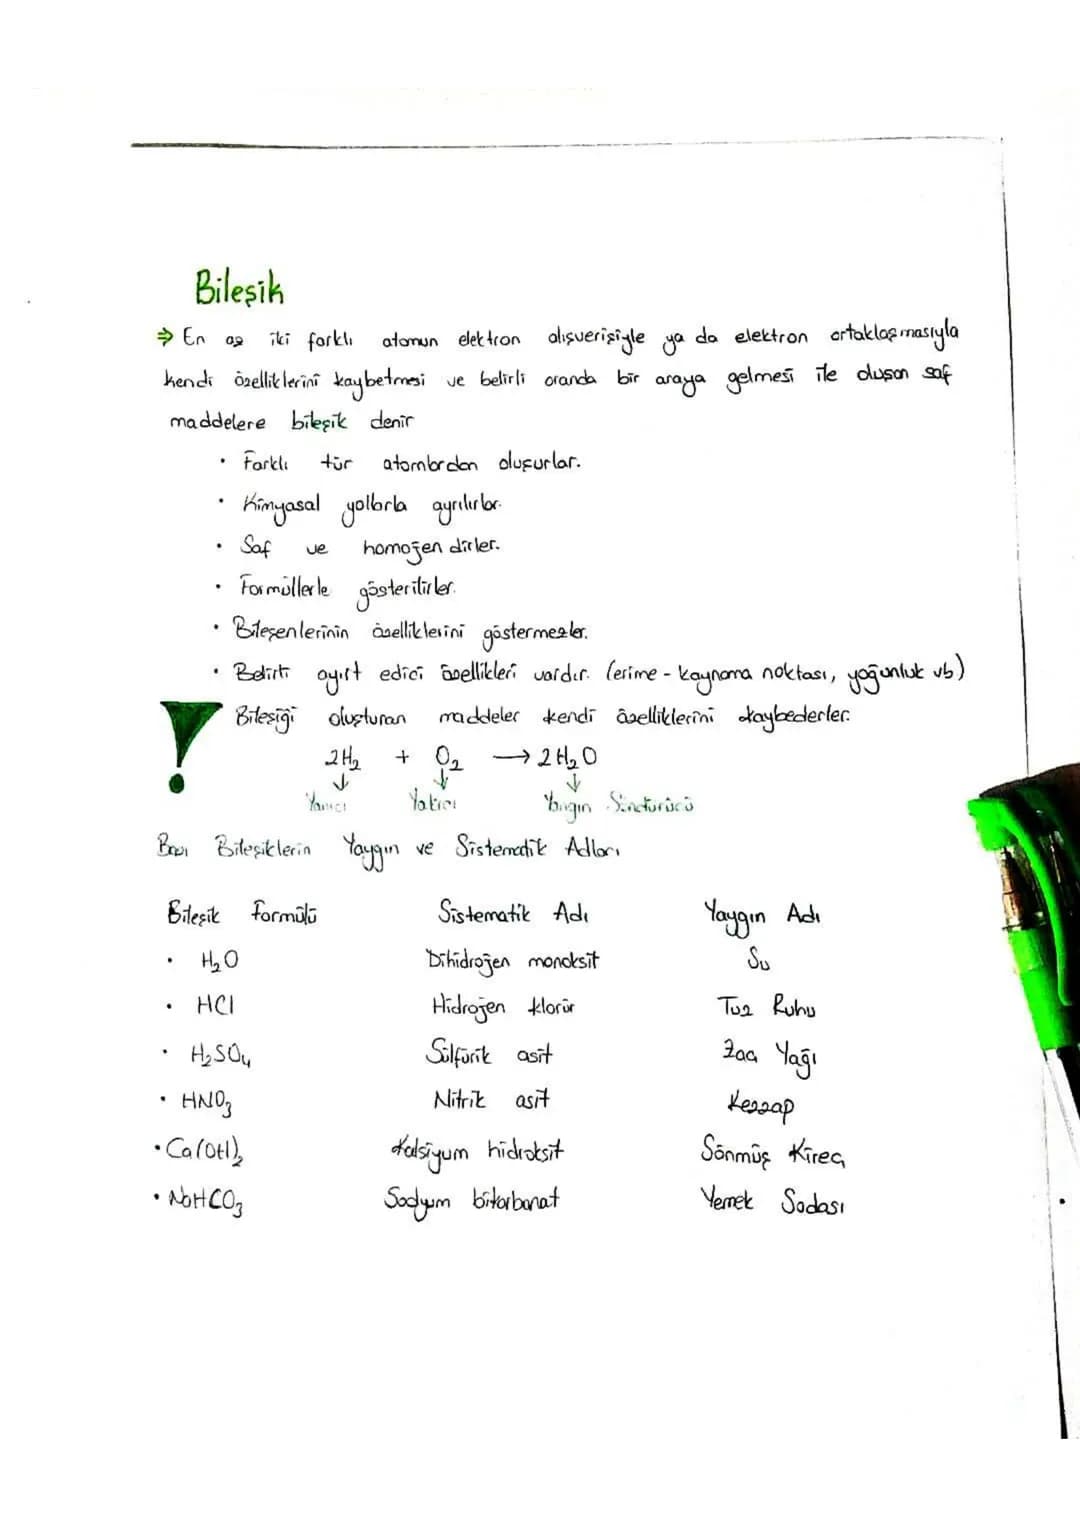 Bileşik
⇒ En az iki farklı atomun elektron alışverişiyle ya da elektron ortaklaşmasıyla
kendi özelliklerini kaybetmesi ve belirli oranda bir araya gelmesi ile oluşan saf
maddelere bileşik denir
• Farklı tür atomlardan oluşurlar.
• Kimyasal yollarla ayrılırlar.
• Saf ve homojendirler.
• Formüllerle gösterilirler.
• Bileşenlerinin özelliklerini göstermezler.
• Belirli ayırt edici özellikleri vardır. (erime - kaynama noktası, yoğunluk vb)
! Bileşiği oluşturan maddeler kendi özelliklerini kaybederler.
2H₂ + O₂ → 2H₂O
↓ ↓ ↓
Yanıcı Yakıcı Yangın Söndürücü
Bazı Bileşiklerin Yaygın ve Sistematik Adları
Bileşik Formülü Sistematik Adı Yaygın Adı
• H₂O Dihidrojen monoksit Su
• HCl Hidrojen klorür Tuz Ruhu
• H₂SO₄ Sülfürik asit Zaç Yağı
• HNO₃ Nitrik asit Kezzap
• Ca(OH)₂ Kalsiyum hidroksit Sönmüş Kireç
• NaHCO₃ Sodyum bikarbonat Yemek Sodası